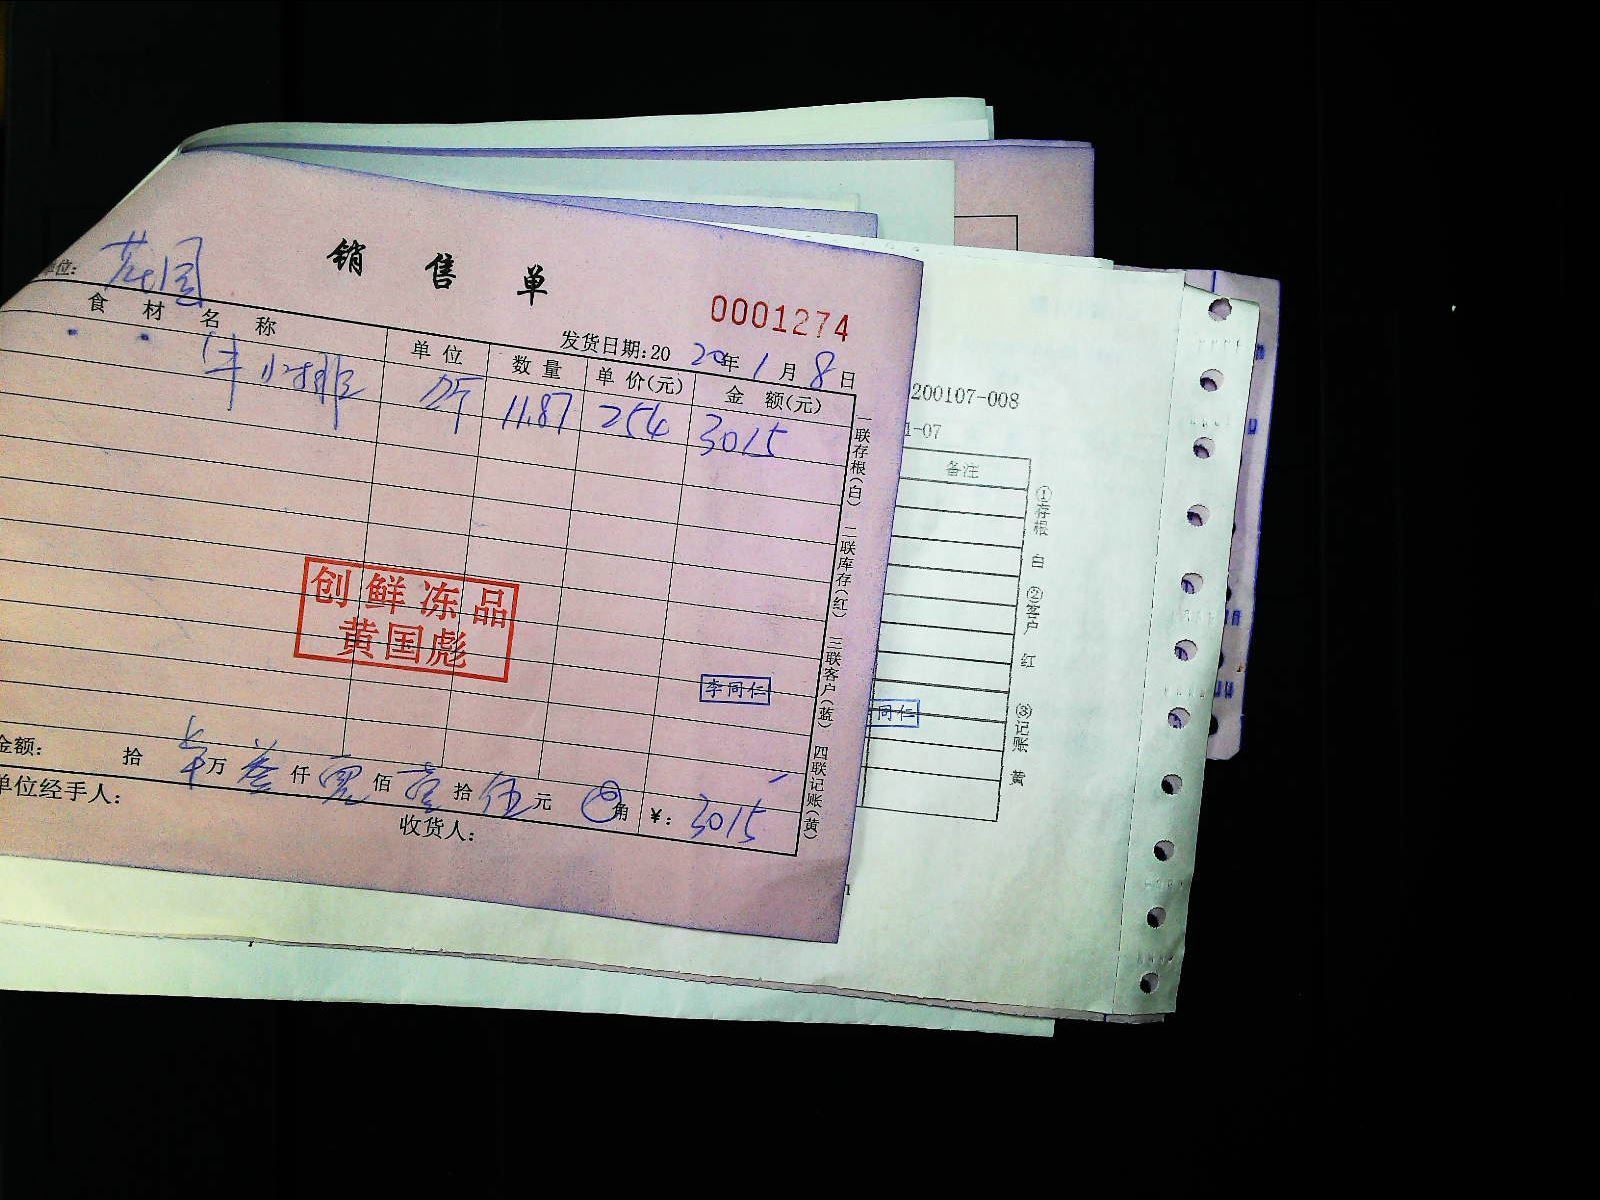 销售单
单位: 花园
0001274
发货日期:2020年1月8日
食材名称 单位 数量 单价(元) 金额(元)
牛小排 斤 11.87 254 3015
创鲜冻品
黄国彪
李同仁
金额: 拾 万叁仟零佰壹拾伍元 角 ¥: 3015
单位经手人:
收货人:
一联存根(白) 二联库存(红) 三联客户(蓝) 四联记账(黄)
200107-008
1-07
备注
①存根 白 ②客户 红 ③记账 黄
同仁